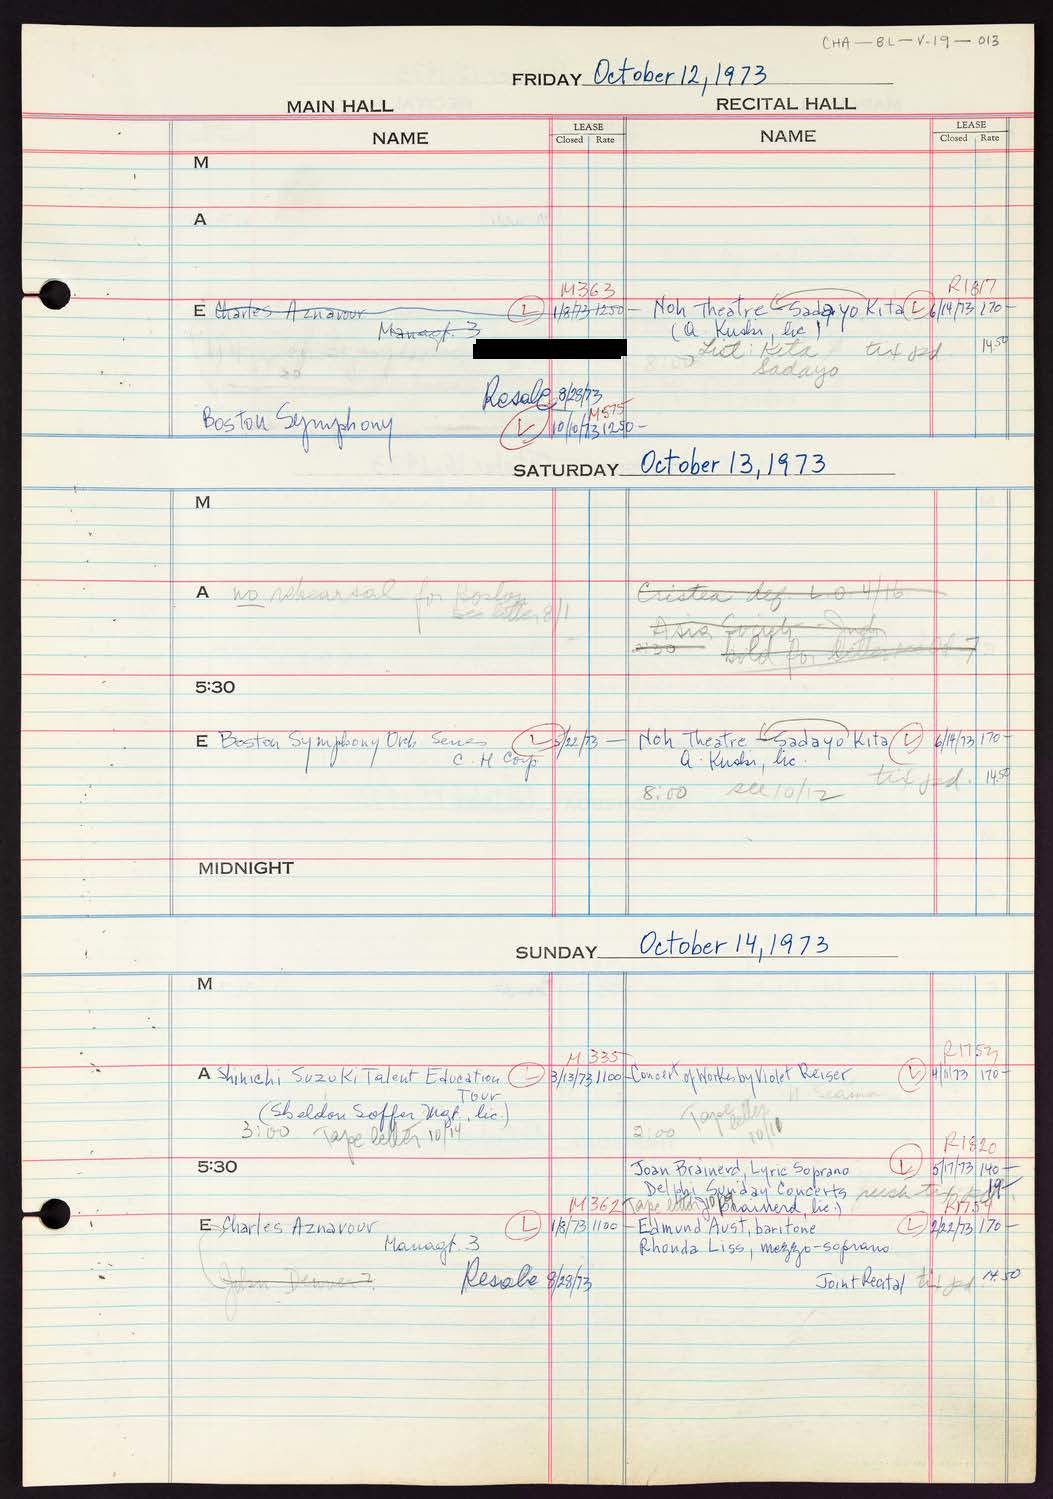 CHA-BL-V-19-013
FRIDAY October 12, 1973
MAIN HALL RECITAL HALL
NAME LEASE Closed Rate NAME LEASE Closed Rate
M
A
M363 R1817
E Charles Aznavour L 1/8/73 1250- Noh Theatre - Sadayo Kita L 6/14/73 170-
Managt. 3 (A. Kushi, Inc)
8:00 List: Kita tix pd 14.50
Sadayo
Resale 8/28/73
M575
Boston Symphony L 10/10/73 1250-
SATURDAY October 13, 1973
M
A no rehearsal for Boston Cristea def. L.O. 4/16
see letter 8/1
Asia Society -
2:30 hold for letter
5:30
E Boston Symphony Orch Series L 5/22/73 - Noh Theatre - Sadayo Kita L 6/14/73 170-
C.H Corp A. Kushi, Inc.
8:00 see 10/12 tix pd. 14.50
MIDNIGHT
SUNDAY October 14, 1973
M
M335
A Shinichi Suzuki Talent Education L 3/13/73 1100- Concert of Works by Violet Reiser L 4/11/73 170-
Tour
(Sheldon Soffer Mgt, Inc.)
3:00 Tape letter 10/14 2:00 Tape letter 10/10
R1820
5:30 Joan Brainerd, Lyric Soprano L 5/17/73 140-
Delphi Sunday Concerts
M362 Tape letter Brainerd, Inc.) R1754
E Charles Aznavour L 1/8/73 1100- Edmund Aust, baritone L 2/22/73 170-
Managt. 3 Rhonda Liss, mezzo-soprano
John Denver? Resale 8/28/73 Joint Recital tix pd 14.50